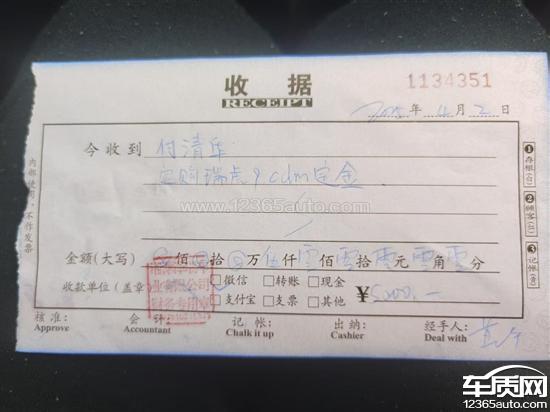 收 据
RECEIPT
1134351
2025 年 4 月 2 日
今 收 到 付清年
定购瑞虎9 cdm定金
金额(大写) 佰 拾 万 伍 仟 零 佰 零 拾 零 元 零 角 零 分
收款单位(盖章) 微信 转账 现金
支付宝 支票 其他
¥ 5000.—
财务专用章
核 准: 会 计: 记 帐: 出 纳: 经手人:
Approve Accountant Chalk it up Cashier Deal with
内部使用,不作发票
① 存根(白)
② 顾客(红)
③ 记帐
www.12365auto.com
车质网
12365auto.com